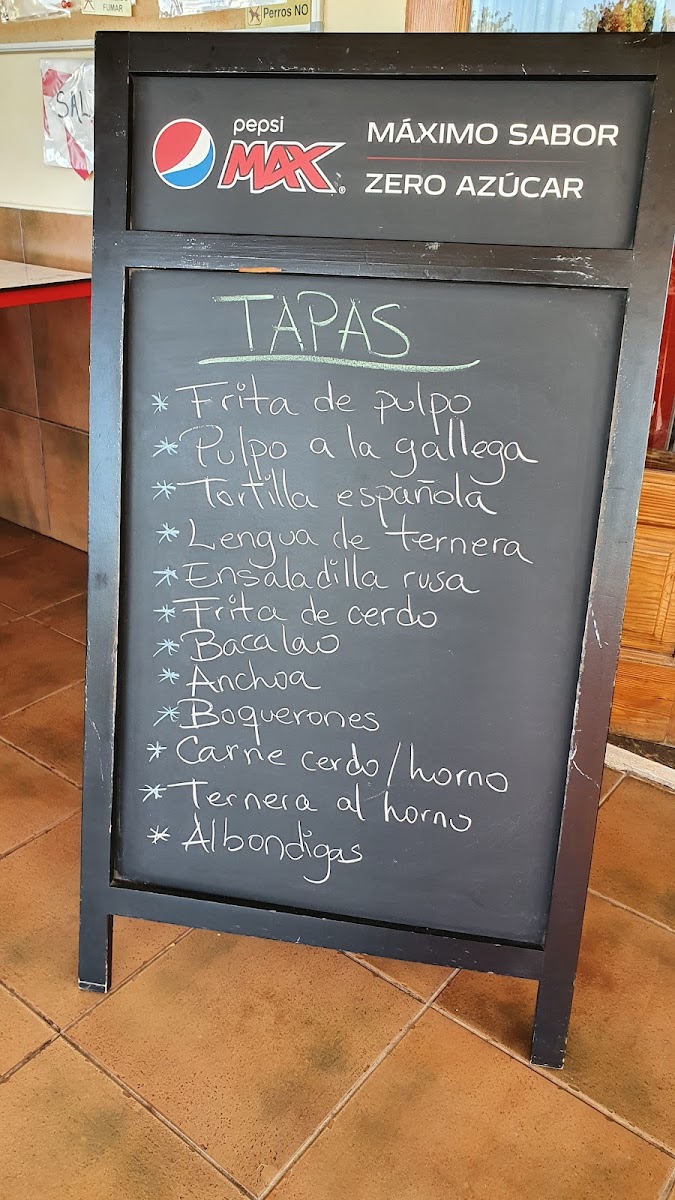 FUMAR
Perros NO
SAL
pepsi
MAX
MÁXIMO SABOR
ZERO AZÚCAR
TAPAS
* Frita de pulpo
* Pulpo a la gallega
* Tortilla española
* Lengua de ternera
* Ensaladilla rusa
* Frita de cerdo
* Bacalao
* Anchoa
* Boquerones
* Carne cerdo/horno
* Ternera al horno
* Albondigas